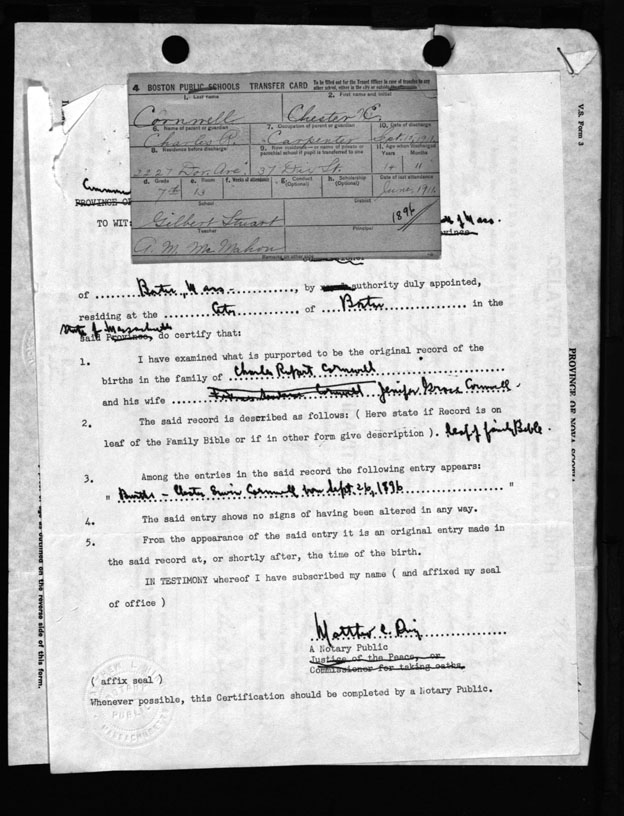 4 BOSTON PUBLIC SCHOOLS TRANSFER CARD
To be filled out for the Truant Officer in case of transfer to any
other school, either in the city or outside
1. Last name 2. First name and initial
Cornwell Chester E.
6. Name of parent or guardian 7. Occupation of parent or guardian 10. Date of discharge
Charles R. Carpenter Sept. 15,
8. Residence before discharge 9. New residence—in name of private or parochial school if pupil is transferred to one 11. Age when discharged
Years Months
Don Ave 37 Day St. 14 11
d. Grade e. Room f. Weeks of attendance g. Conduct (Optional) h. Scholarship (Optional) Date of last attendance
7th 13 June, 1911
School District
Gilbert Stuart
1896
Teacher Principal
A. M. McMahon
Remarks on other side
V.S. Form 3
PROVINCE OF
TO WIT:
of Mass.
Province
of Boston, Mass. , by authority duly appointed,
residing at the City of Boston in the
State of Massachusetts
said Province, do certify that:
1. I have examined what is purported to be the original record of the
births in the family of Charles Rupert Cornwell
and his wife Cornwell Jenifer Cornwell.
2. The said record is described as follows: ( Here state if Record is on
leaf of the Family Bible or if in other form give description ). leaf of family Bible.
3. Among the entries in the said record the following entry appears:
" Births - Chester Erwin Cornwell born Sept. 26, 1896 "
4. The said entry shows no signs of having been altered in any way.
5. From the appearance of the said entry it is an original entry made in
the said record at, or shortly after, the time of the birth.
IN TESTIMONY whereof I have subscribed my name ( and affixed my seal
of office )
A Notary Public
Justice of the Peace, or
Commissioner for taking oaths.
( affix seal )
Whenever possible, this Certification should be completed by a Notary Public.
NOTARY
PUBLIC
MASSACHUSETTS
PROVINCE OF NOVA SCOTIA
on the reverse side of this form.